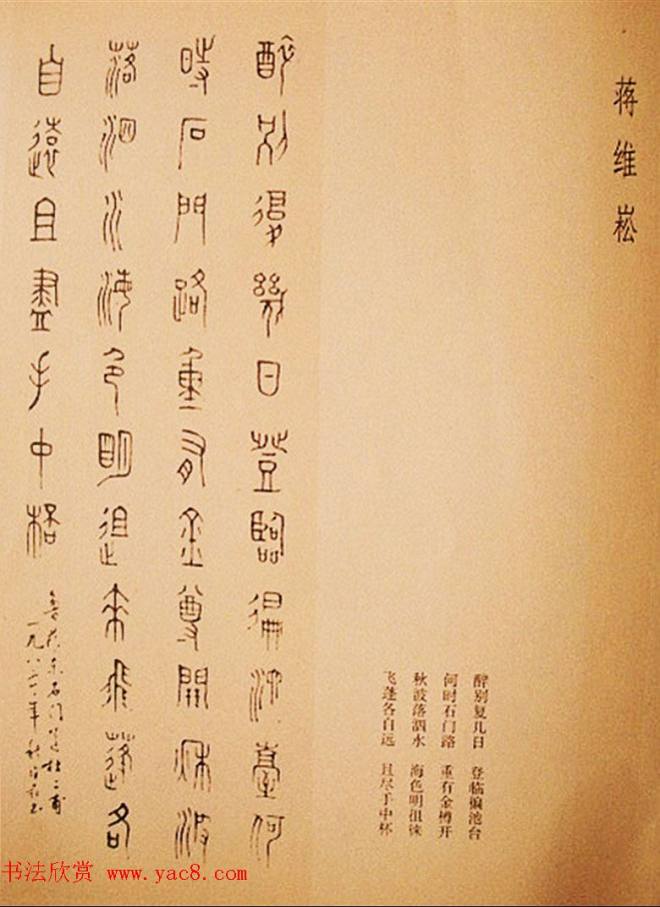 蒋维崧
醉别复几日 登临徧池台
何时石门路 重有金樽开
秋波落泗水 海色明徂徕
飞蓬各自远 且尽手中杯
醉别復幾日登臨徧池臺何
時石門路重有金尊開秋波
落泗水海色明徂來飛蓬各
自遠且盡手中桮
魯郡東石门送杜二甫
一九八
书法欣赏 www.yac8.com